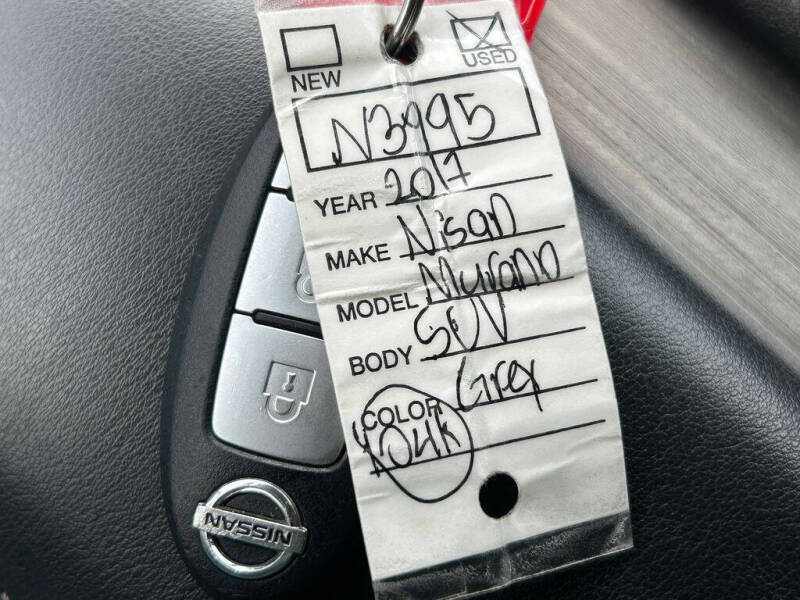 NEW
USED
N3995
YEAR 2017
MAKE Nisan
MODEL Murano
BODY SUV
COLOR Grey
104k
NISSAN